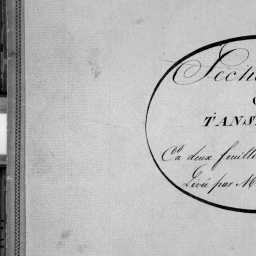 Secti
TANS
En deux feuill
Levée par M